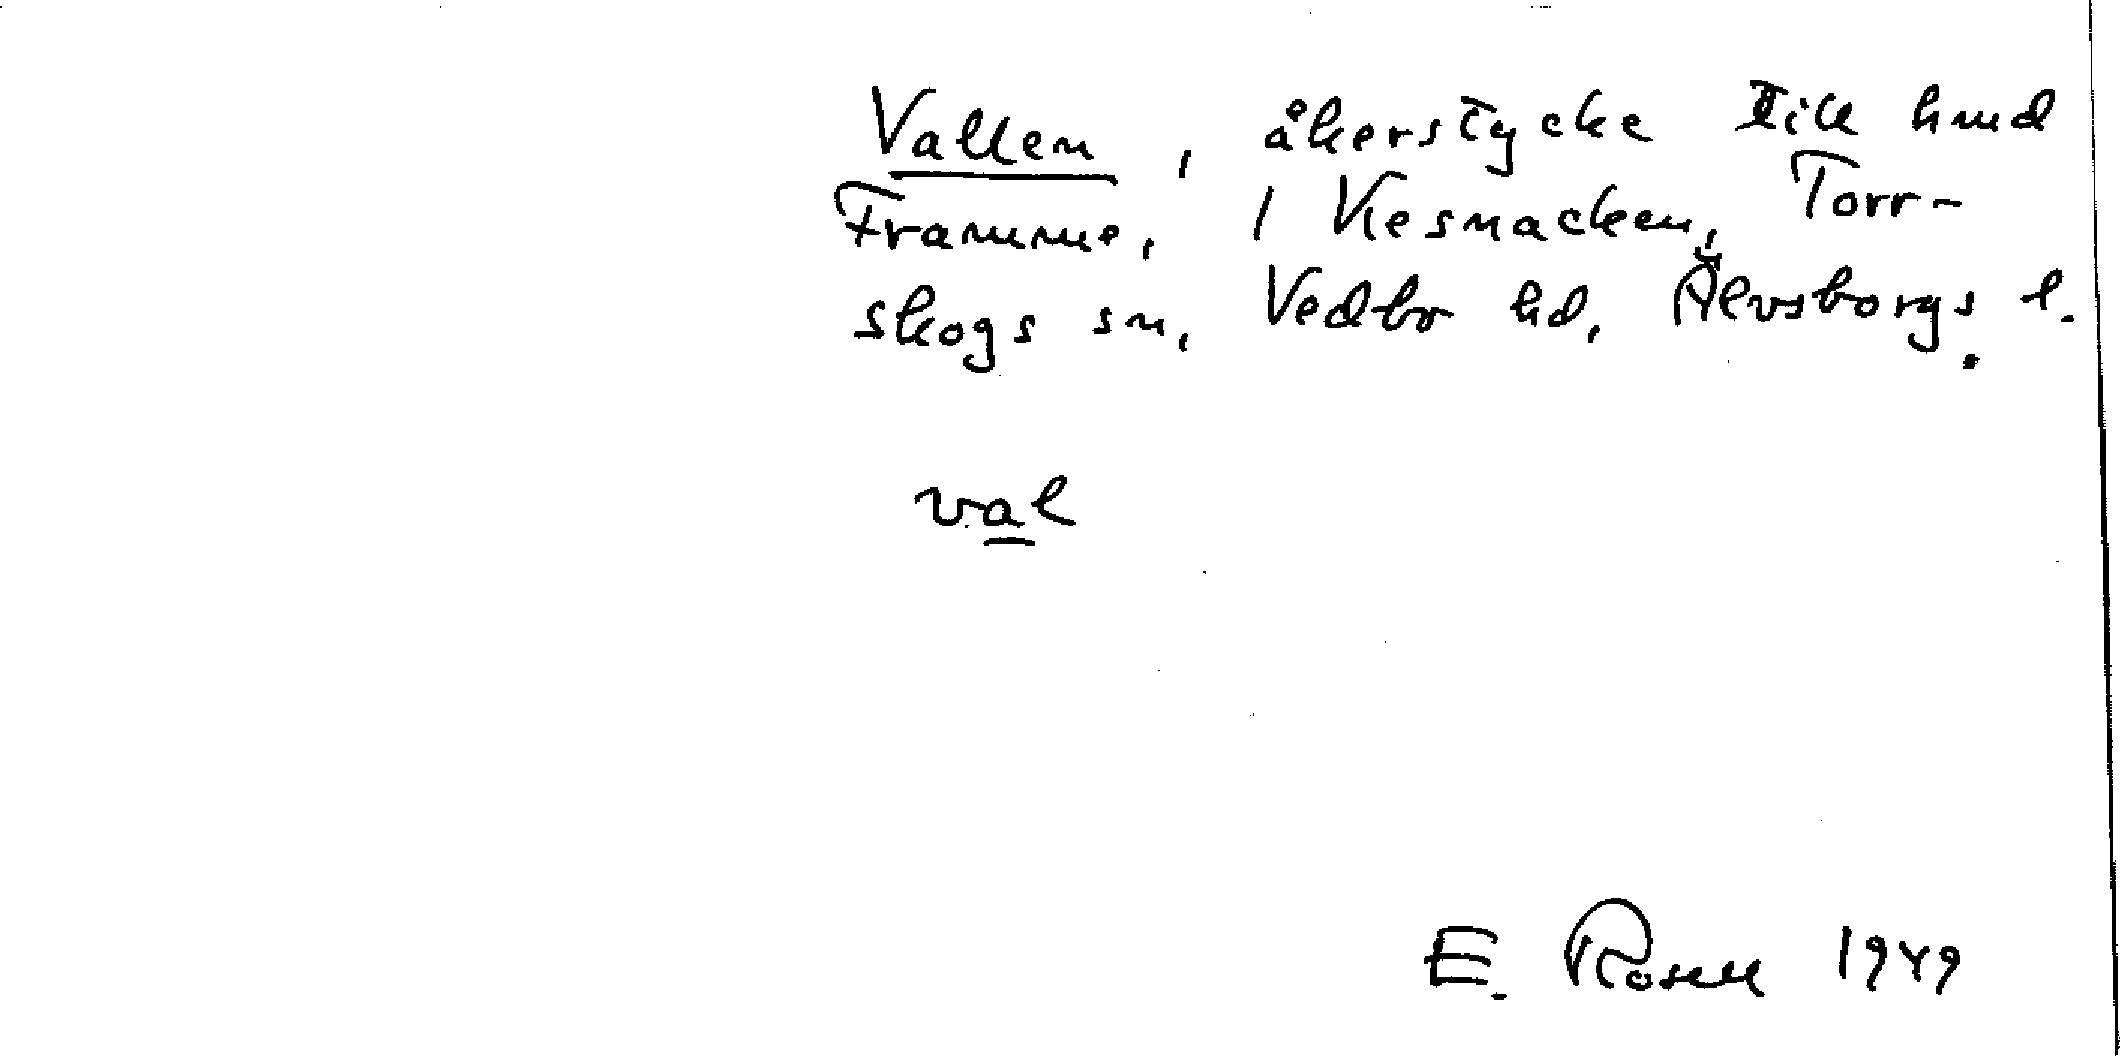 Vallen, åkerstycke till hmd
Framme, 1 Kesnacken, Torr-
skogs sn, Vedbo hd, Älvsborgs l.
val
E. Rosell 1949